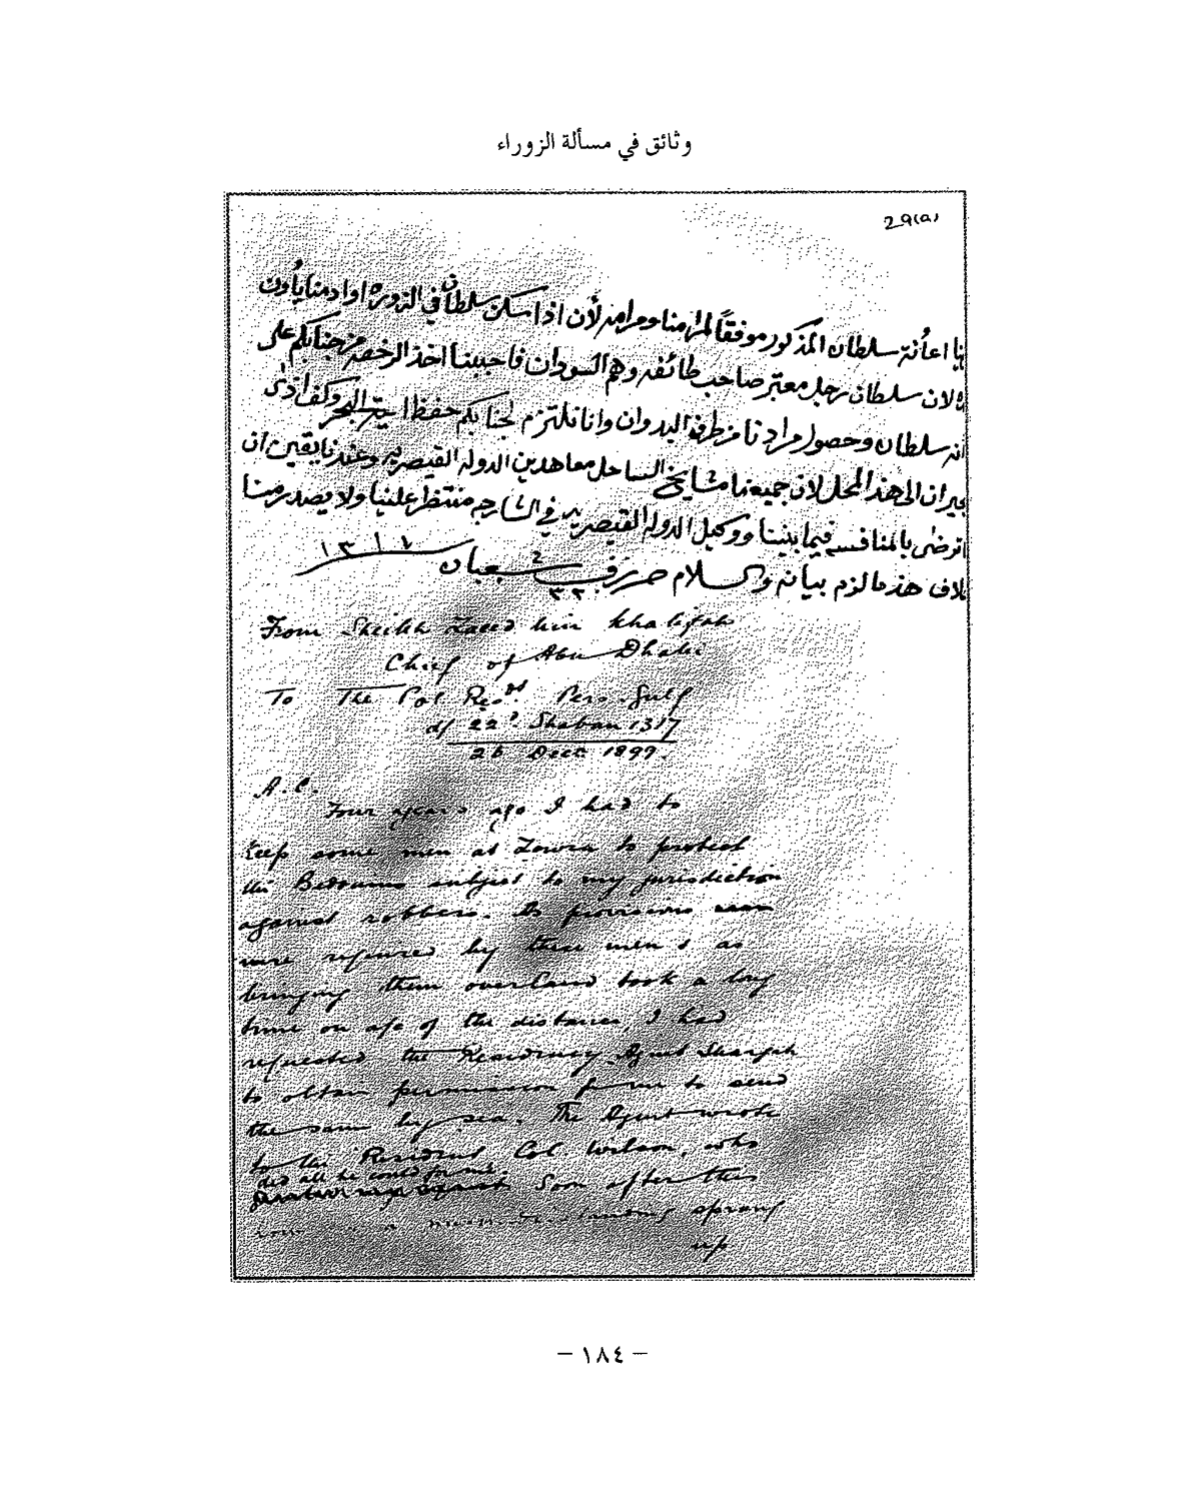 وثائق في مسألة الزوراء
29(a)
اعانة سلطان المذكور موفقاً لمرامنا ومرامه لأن اذا سكن سلطان في الزوره او ادمنا يأوون
لان سلطان رجل معتبر صاحب طائفه وهم السودان فاحببنا اخذ الرخصه من جنابكم على
سلطان وحصول مرادنا من طرف البدوان وانا نلتزم لجنابكم حفظا البحر وكف اذى
الى هذا المحل لان جميعنا مشايخ الساحل معاهدين الدوله القيصريه وعندنا يقين ان
ترضى بالمنافسه فيما بيننا ووكيل الدوله القيصريه في الشارجه منتظر علينا ولا يصدر منا
هذه ما لزم بيانه والسلام حرر في ٢٢ شعبان ١٣١٧
From Sheikh Zaeed bin Khalifah
Chief of Abu Dhabi
To The Pol Resdt. Pers. Gulf
d/ 22d. Shaban 1317
26 Decr. 1899.
A.C.
Four years ago I had to
keep some men at Zowra to protect
the Bedouins subject to my jurisdiction
against robbers. As provisions
were required by these men & as
bringing them overland took a long
time on a/c of the distance, I had
requested the Residency Agent Shargah
to obtain permission for me to send
the same by sea. The Agent wrote
to the Resident Col. Wilson, who
did all he could for me.
Soon after this
a misunderstanding sprang
up
– ١٨٤ –